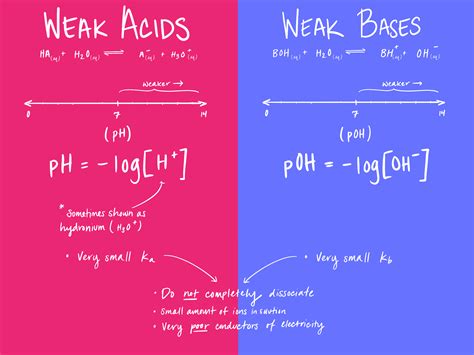 WEAK ACIDS
HA(aq) + H2O(aq) ⇌ A⁻(aq) + H3O⁺(aq)
weaker →
0 7 14
(pH)
pH = -log[H⁺]
* Sometimes shown as
hydronium (H3O⁺)
• Very small Ka
WEAK BASES
BOH(aq) + H2O(aq) ⇌ BH⁺(aq) + OH⁻(aq)
weaker →
0 7 14
(pOH)
pOH = -log[OH⁻]
• Very small Kb
• Do not completely dissociate
• Small amount of ions in solution
• Very poor conductors of electricity